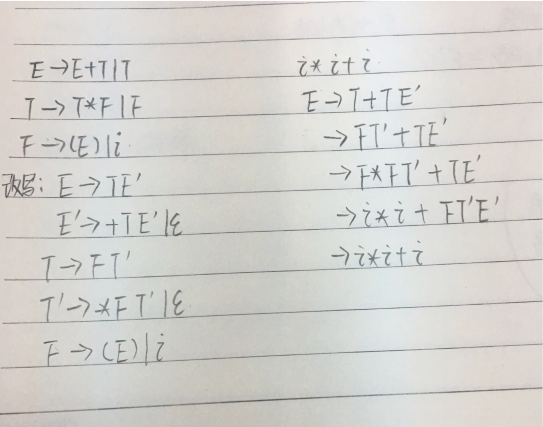 E→E+T|T
T→T*F|F
F→(E)|i
改写: E→TE'
E'→+TE'|ε
T→FT'
T'→*FT'|ε
F→(E)|i
i*i+i
E→T+TE'
→FT'+TE'
→F*FT'+TE'
→i*i+FT'E'
→i*i+i